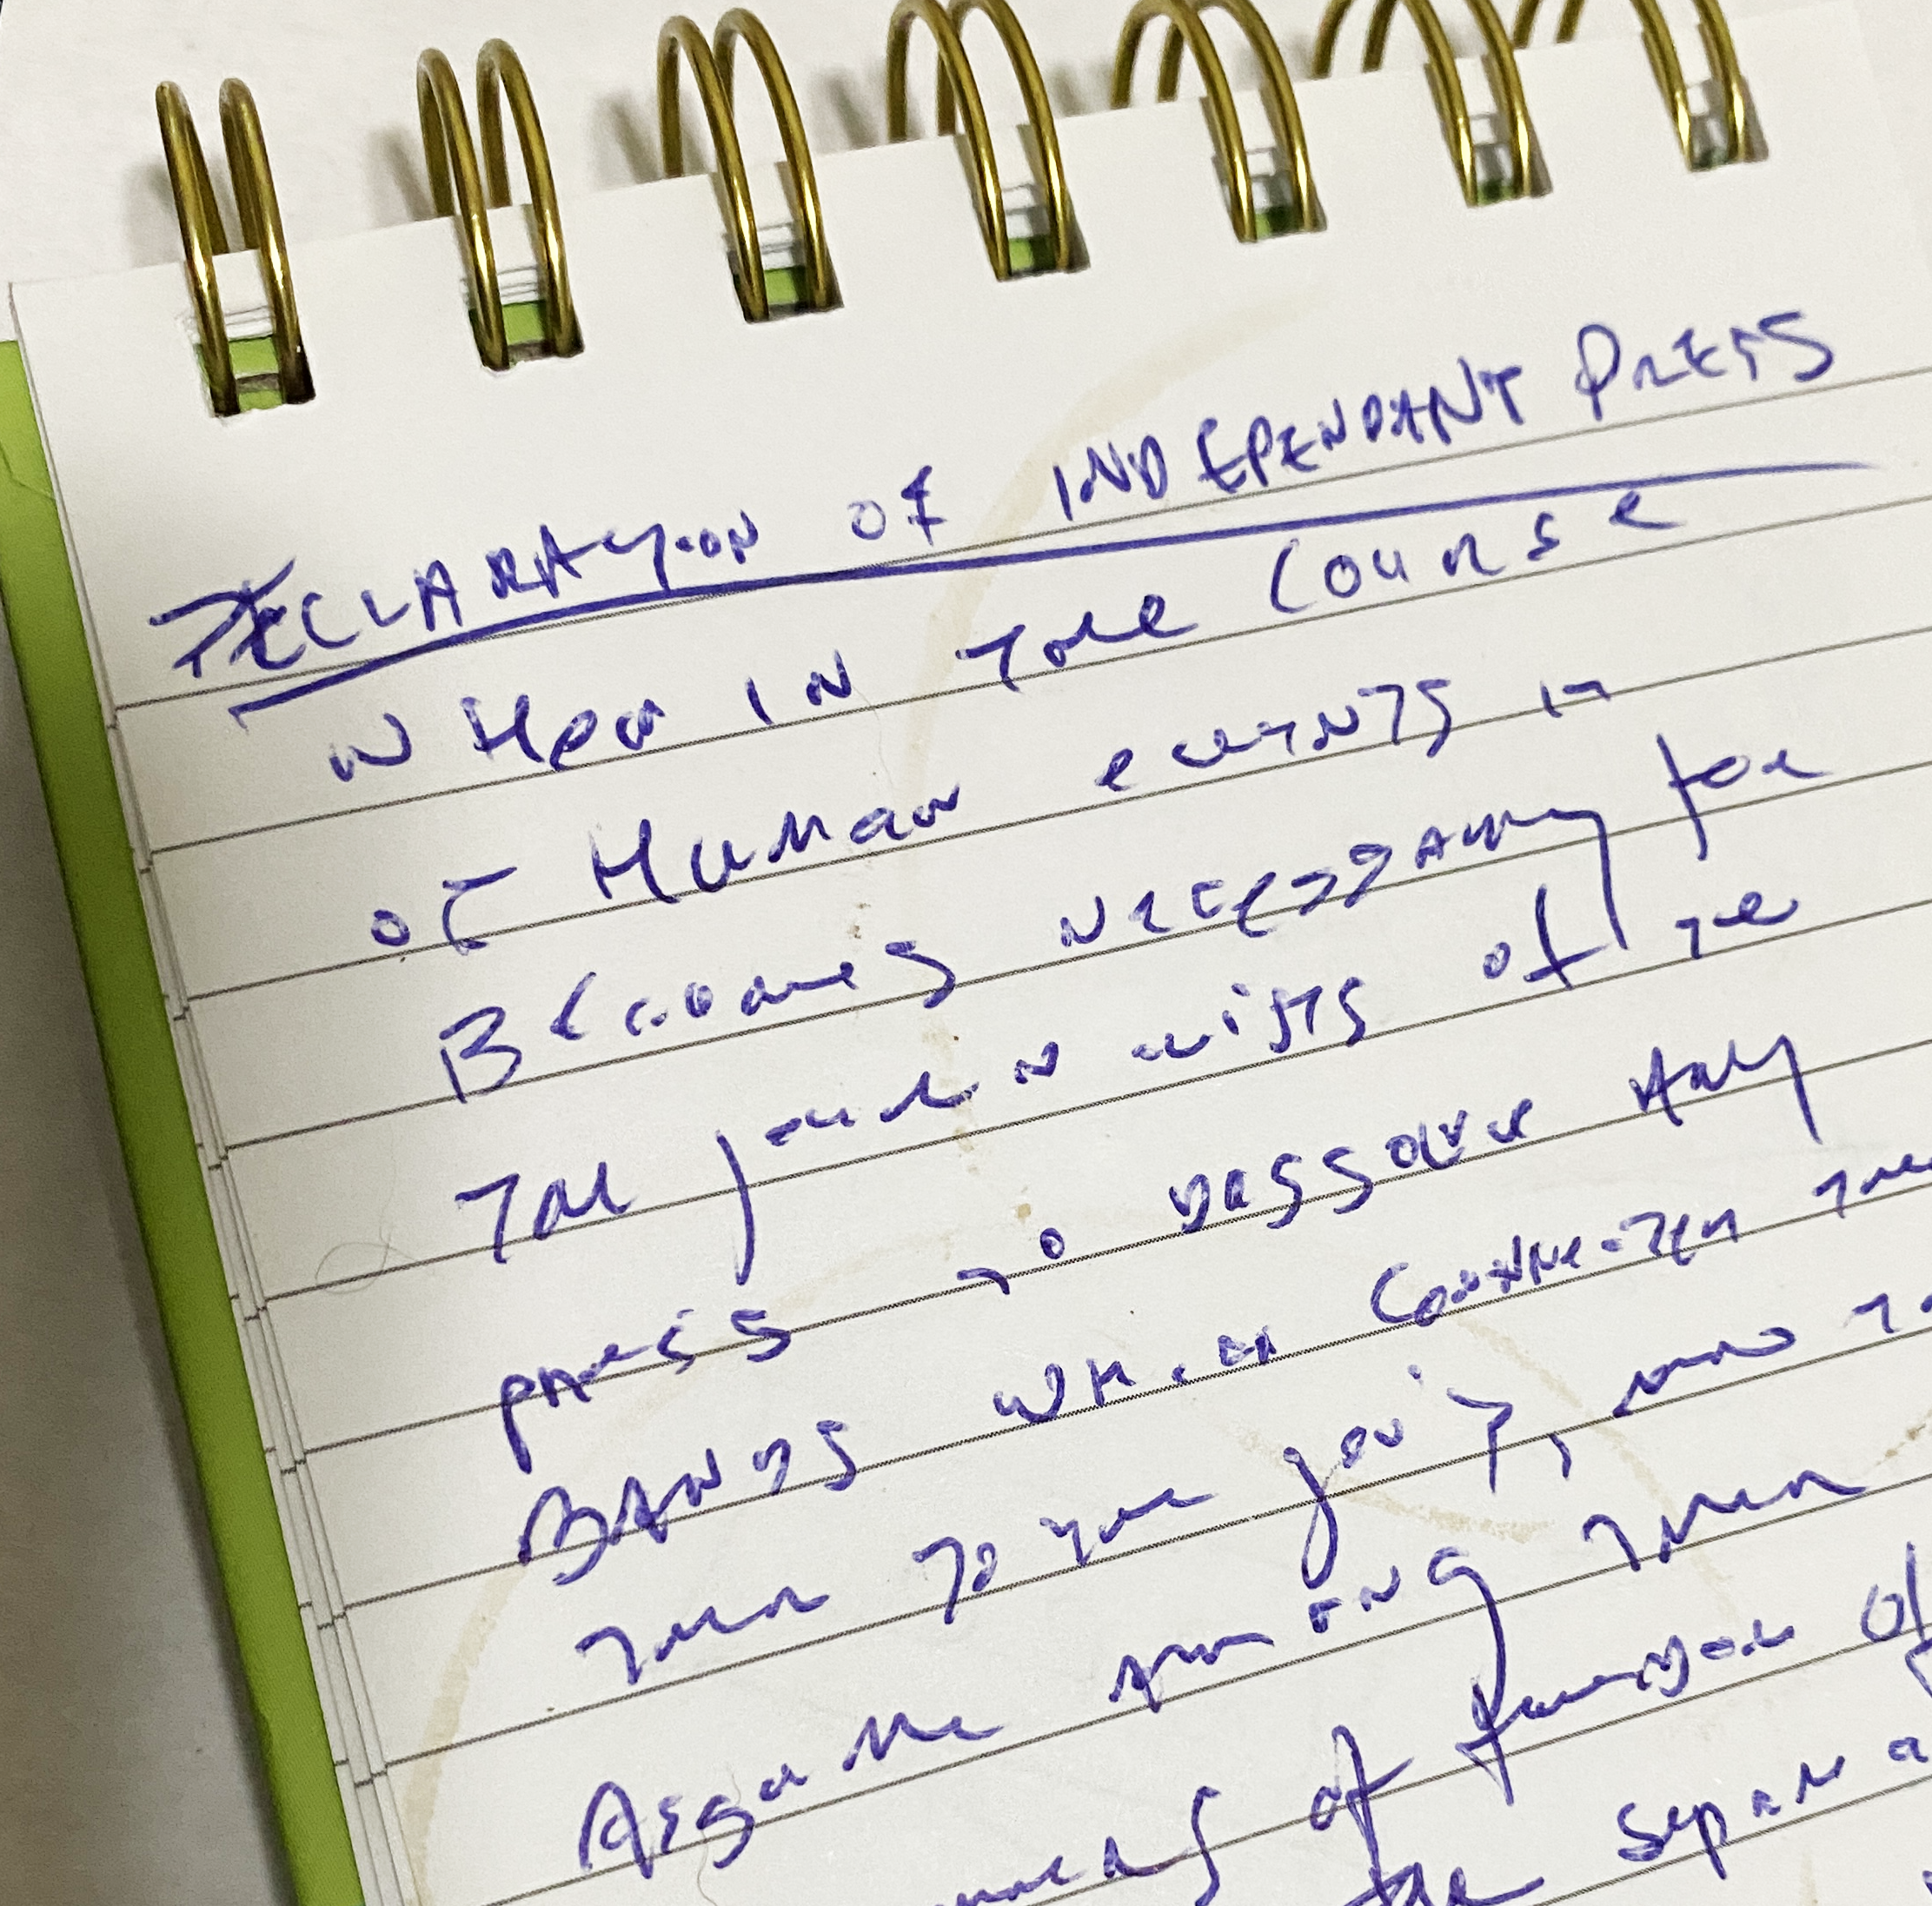 DECLARATION OF INDEPENDANT PRESS
WHen IN THe Course
of Human events it
Becomes necessary for
THe journalists of the
press To dissolve Any
BANDS WHich Connected them
Then To The gov't, and to
Assume among Then
of freedom of
the separa